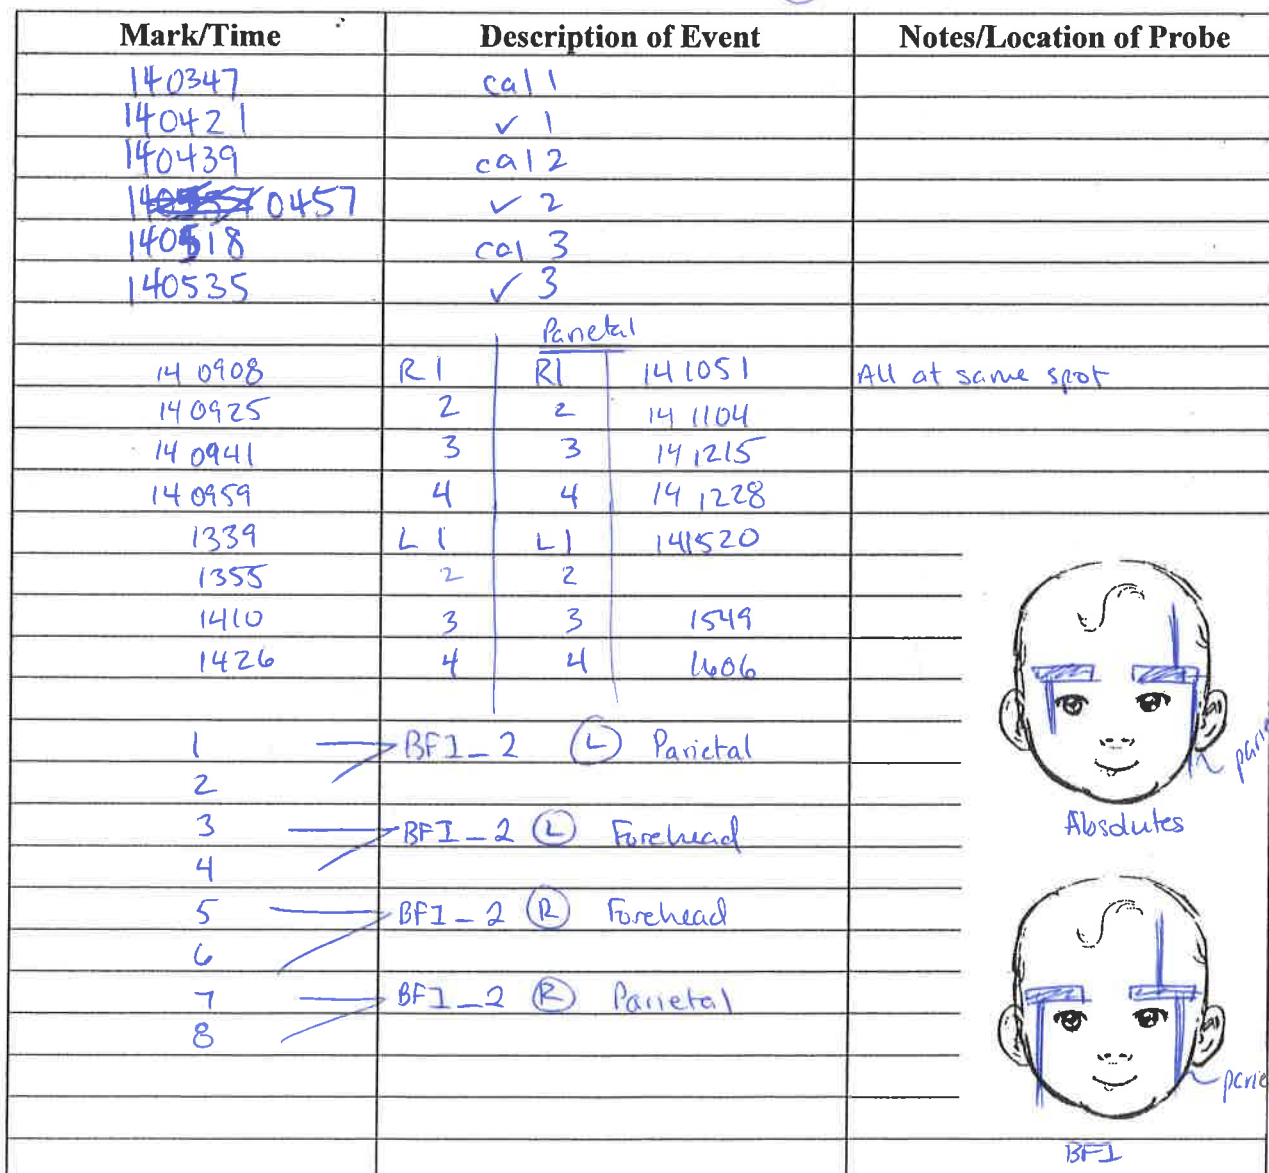 Mark/Time Description of Event Notes/Location of Probe
140347 cal 1
140421 ✓ 1
140439 cal 2
140457 ✓ 2
140518 cal 3
140535 ✓ 3
Parietal
140908 R1 R1 141051 All at same spot
140925 2 2 141104
140941 3 3 141215
140959 4 4 141228
1339 L1 L1 141520
1355 2 2
1410 3 3 1549
1426 4 4 1606
1 BFI_2 (L) Parietal
2
3 BFI_2 (L) Forehead
4
Absolutes
5 BFI_2 (R) Forehead
6
7 BFI_2 (R) Parietal
8
BFI